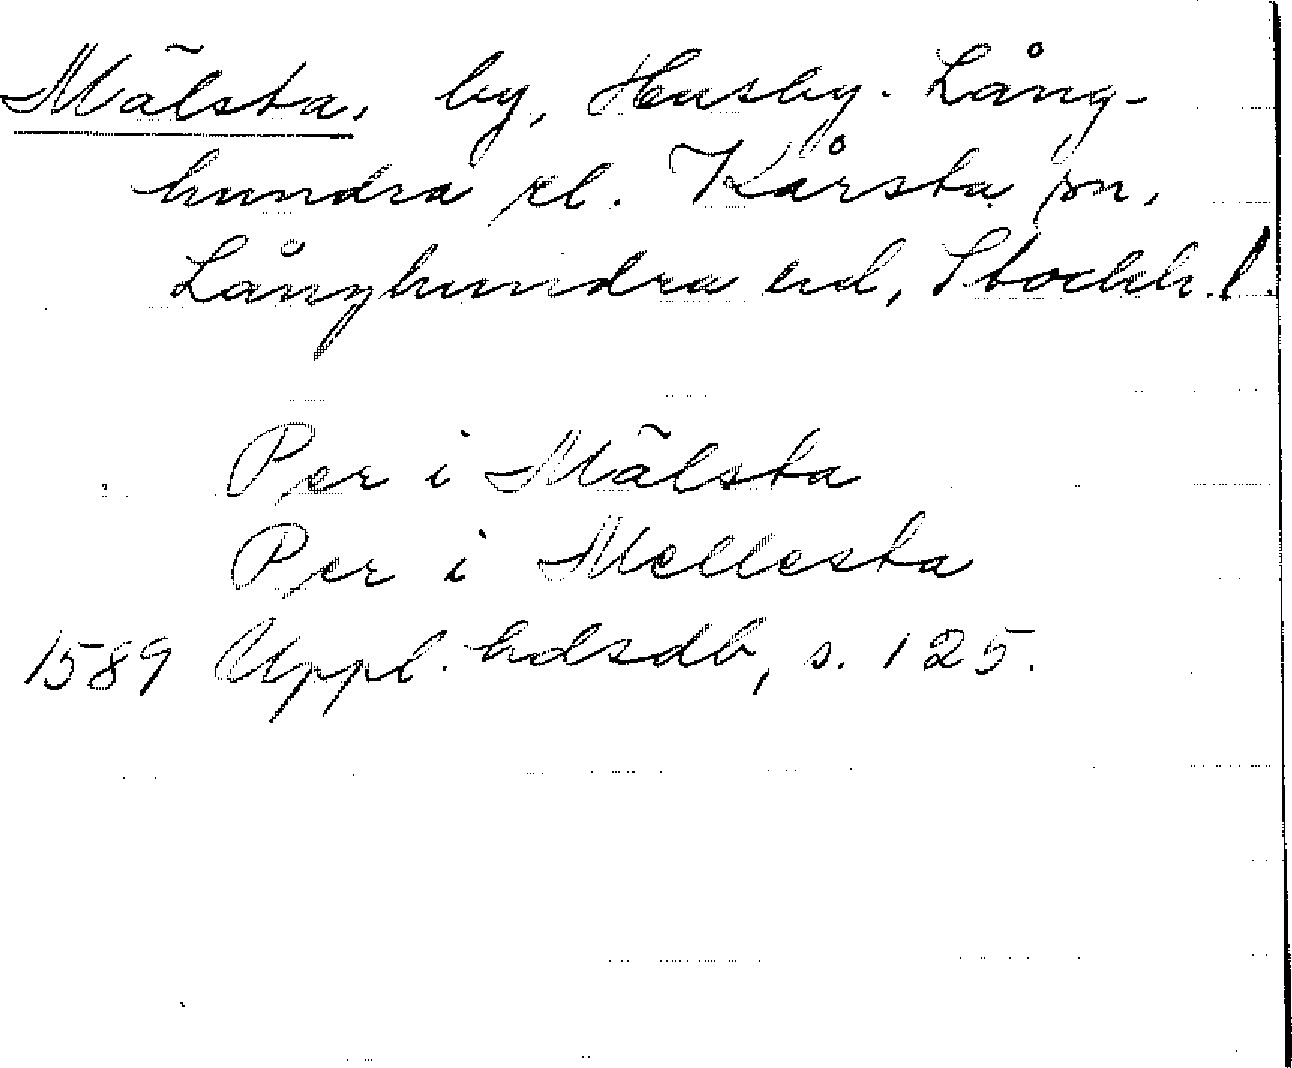 Mälsta, by, Husby-Lång-
hundra el. Kårsta sn,
Långhundra hd, Stockh. l.
Per i Mälsta
Per i Mellesta
1589 Uppl. hdsdb, s. 125.